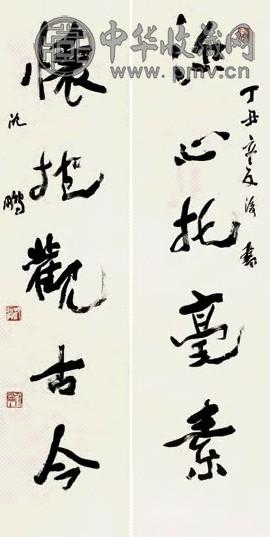 中华收藏网
www.pmv.cn
深心托毫素
丁丑
書
懷抱觀古今
沈鵬